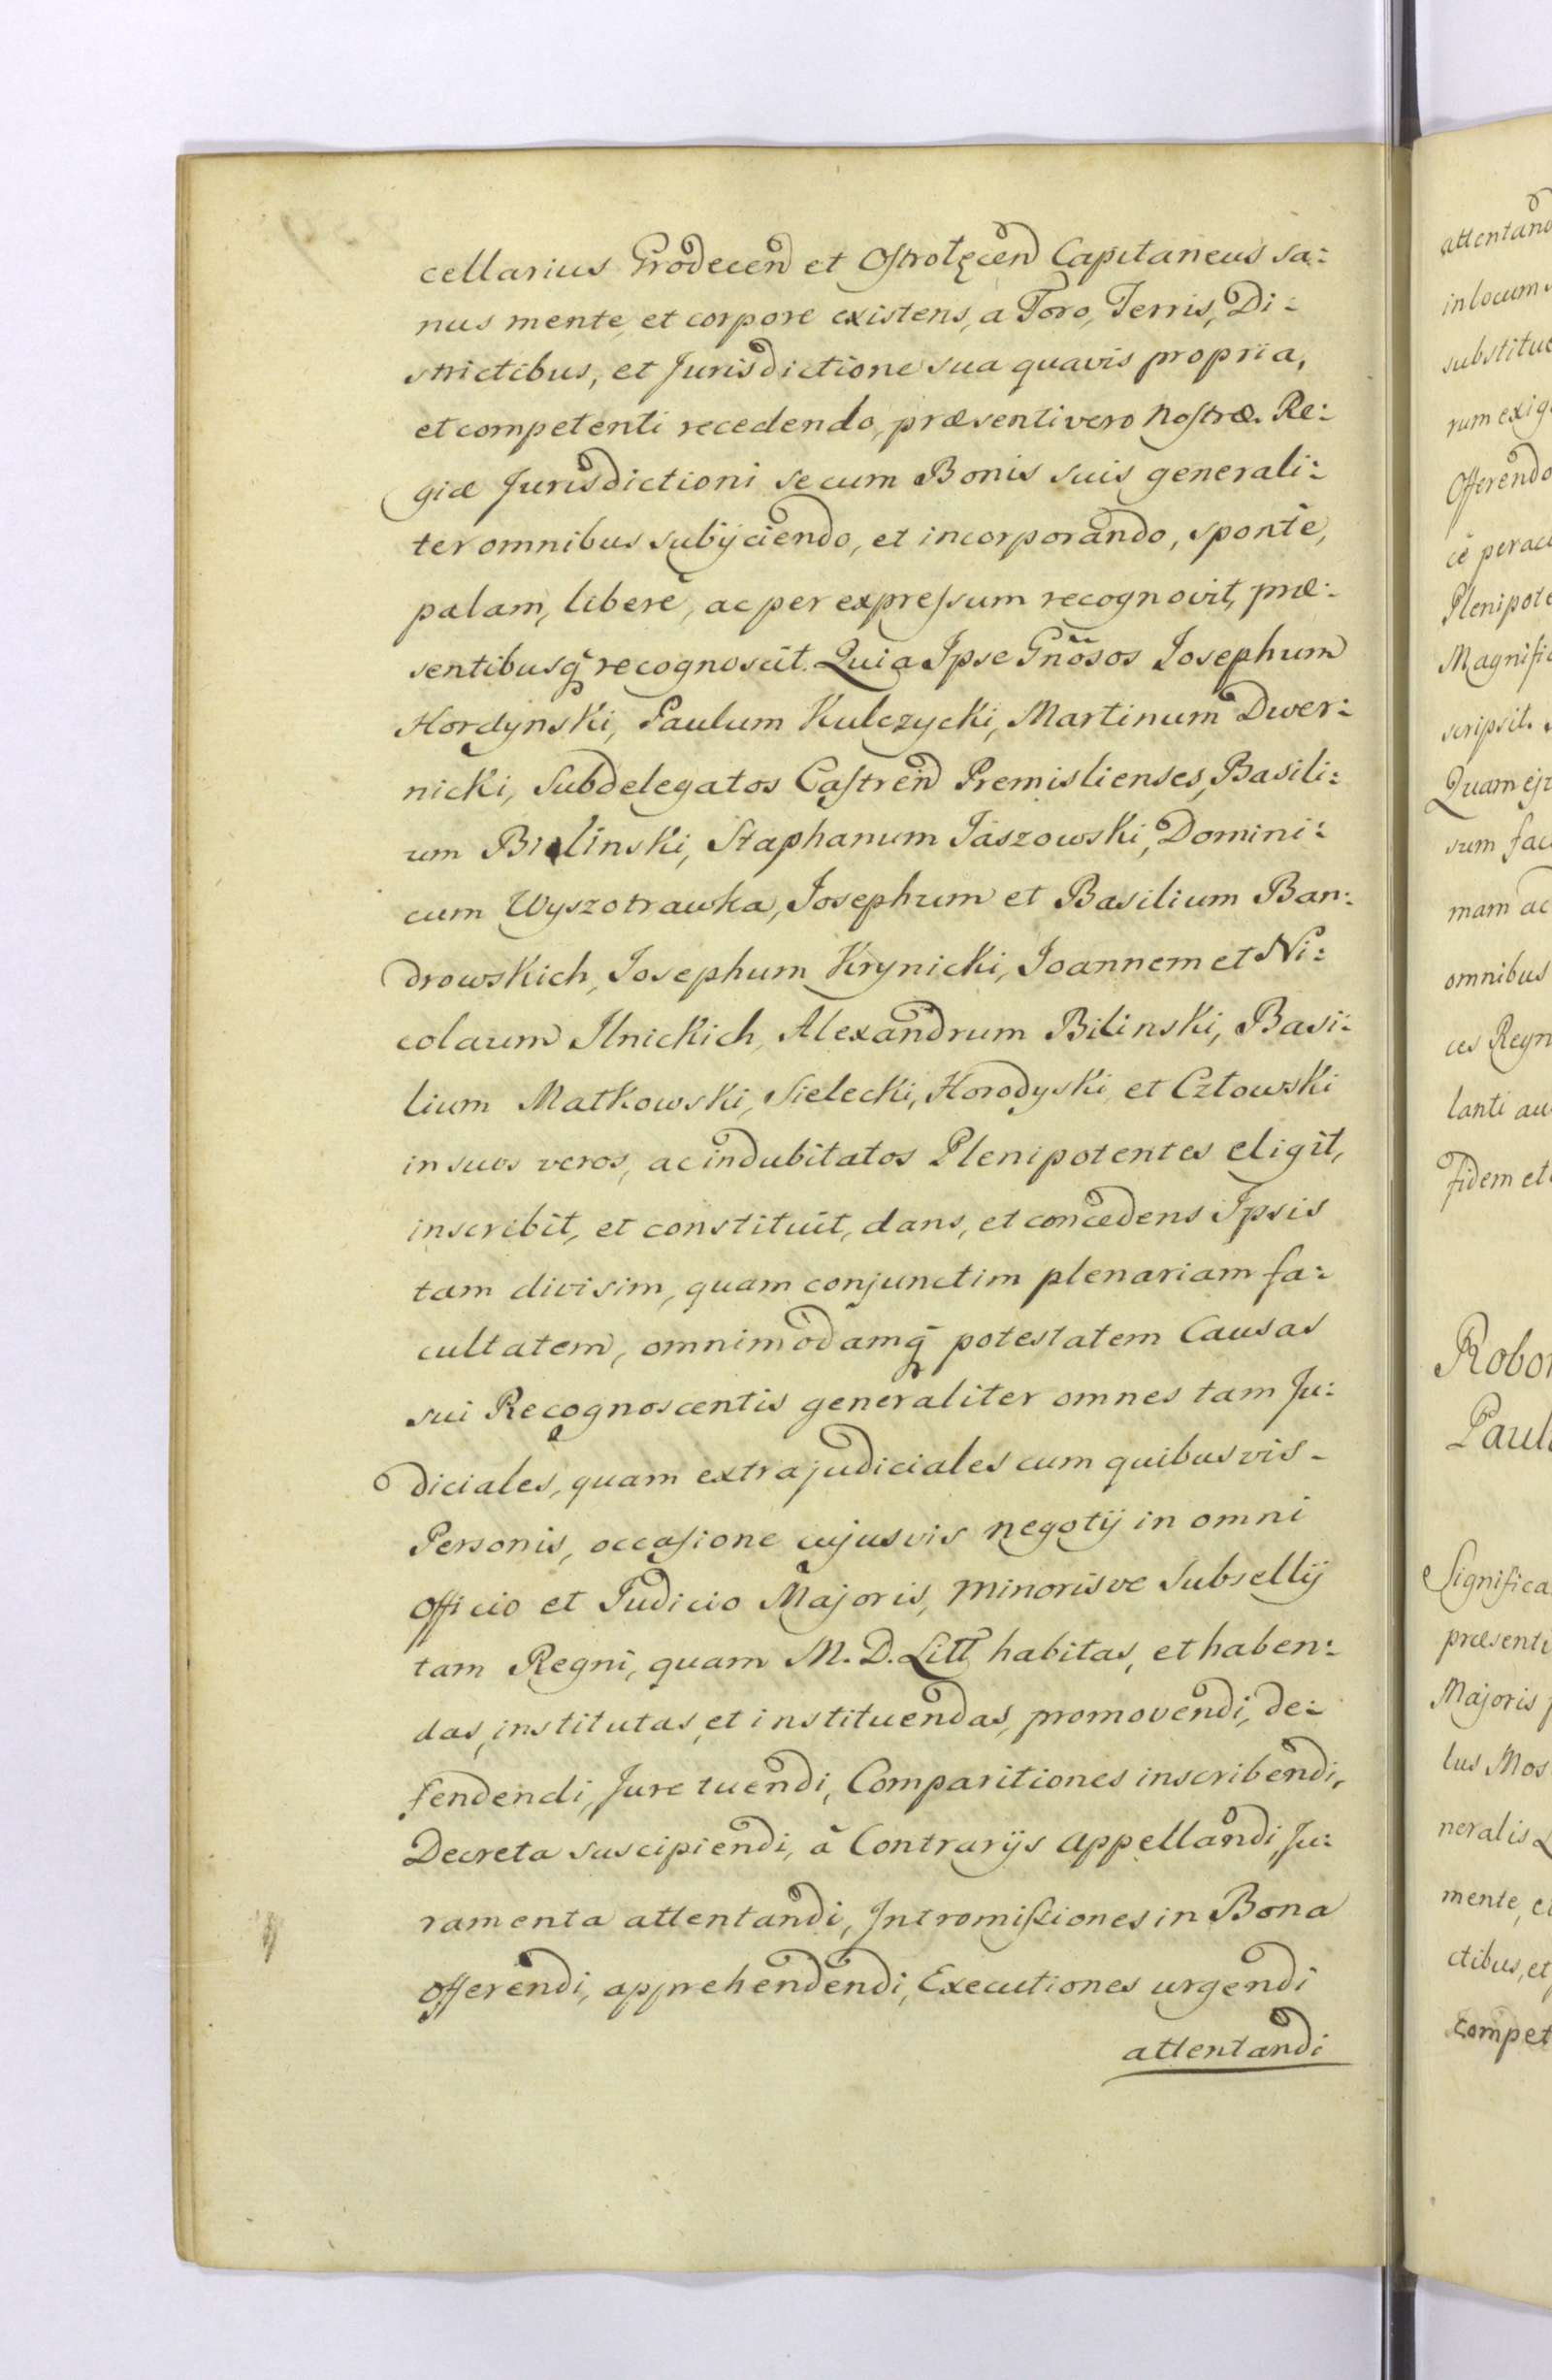 cellarius Grodecen et Ostrołęcen Capitaneus sa:
nus mente, et corpore existens, a Foro, Terris, Di:
strictibus, et Jurisdictione sua quavis propria,
et competenti recedendo, præsenti vero Nostræ Re:
giæ Jurisdictioni se cum Bonis suis generali:
ter omnibus subijciendo, et incorporando, sponte,
palam, libere, ac per expressum recognovit, præ:
sentibusq̃ recognoscit. Quia Ipse Gnõsos Josephum
Hordynski, Paulum Kulczycki, Martinum Dwer:
nicki, Subdelegatos Castren Premislienses, Basili:
um Bilinski, Staphanum Jaszowski, Domini:
cum Wyszotrawka, Josephum et Basilium Ban:
drowskich, Josephum Krynicki, Joannem et Ni:
colaum Ilnickich, Alexandrum Bilinski, Basi:
lium Matkowski, Sielecki, Horodyski et Człowski
in suos veros, ac indubitatos Plenipotentes eligit,
inscribit, et constituit, dans, et concedens Ipsis
tam divisim, quam conjunctim plenariam fa:
cultatem, omnimodamq̃ potestatem Causas
sui Recognoscentis generaliter omnes tam Ju:
diciales, quam extrajudiciales cum quibusvis -
Personis, occasione cujusvis negotij in omni
Officio et Judicio Majoris, Minorisve Subsellij
tam Regni, quam M. D. Litt habitas, et haben:
das, institutas, et instituendas, promovendi, de:
fendendi, Jure tuendi, Comparitiones inscribendi,
Decreta suscipiendi, â Contrarijs appellandi, Ju:
ramenta attentandi, Intromissiones in Bona
Offerendi, apprehendendi, Executiones urgendi
attentandi
attentand
in locum
substitue
rum exig
Offerendo
ce perac
Plenipote
Magnific
scripsit.
Quam ej
sum fac
mam ac
omnibus
ces Regn
lanti au
fidem et
Robo
Paul
Significa
præsenti
Majoris
lus Mos
neralis
mente, e
ctibus, et
compet